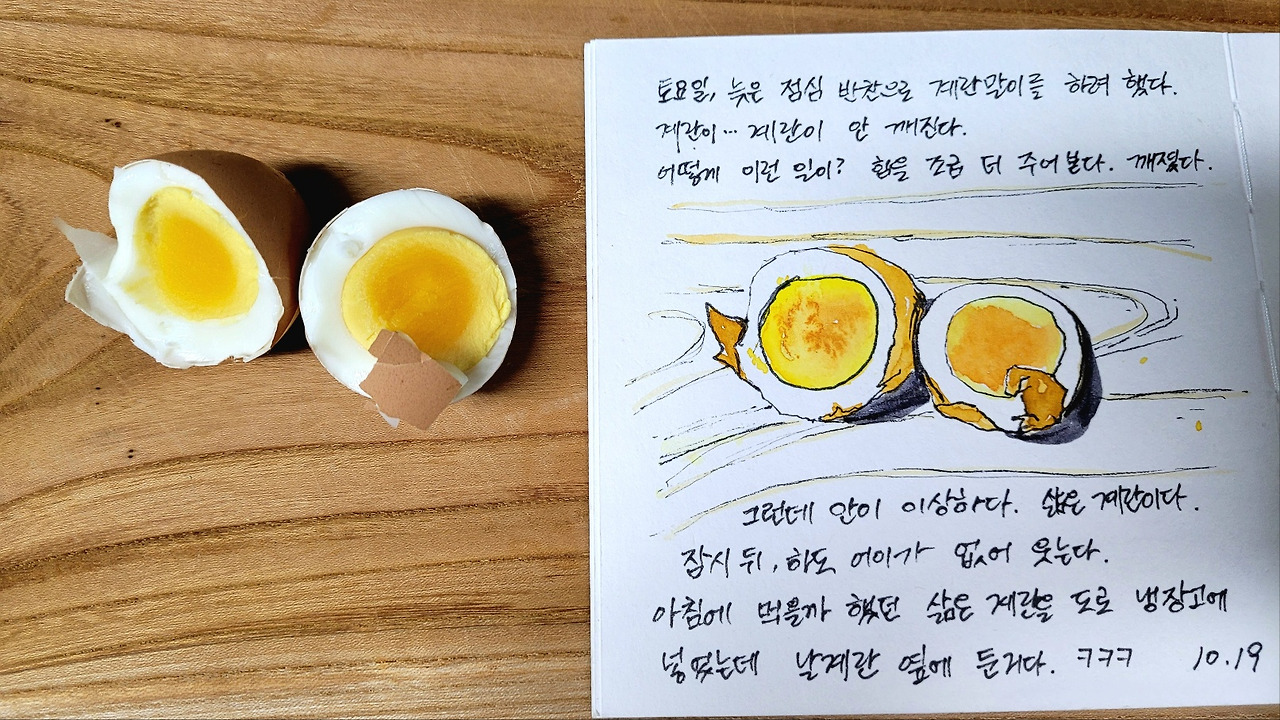 토요일, 늦은 점심 반찬으로 계란말이를 하려 했다.
계란이… 계란이 안 깨진다.
어떻게 이런 일이? 힘을 조금 더 주어본다. 깨졌다.
그런데 안이 이상하다. 삶은 계란이다.
잠시 뒤, 하도 어이가 없어 웃는다.
아침에 먹을까 했던 삶은 계란을 도로 냉장고에
넣었는데 날계란 옆에 둔거다. ㅋㅋㅋ 10.19